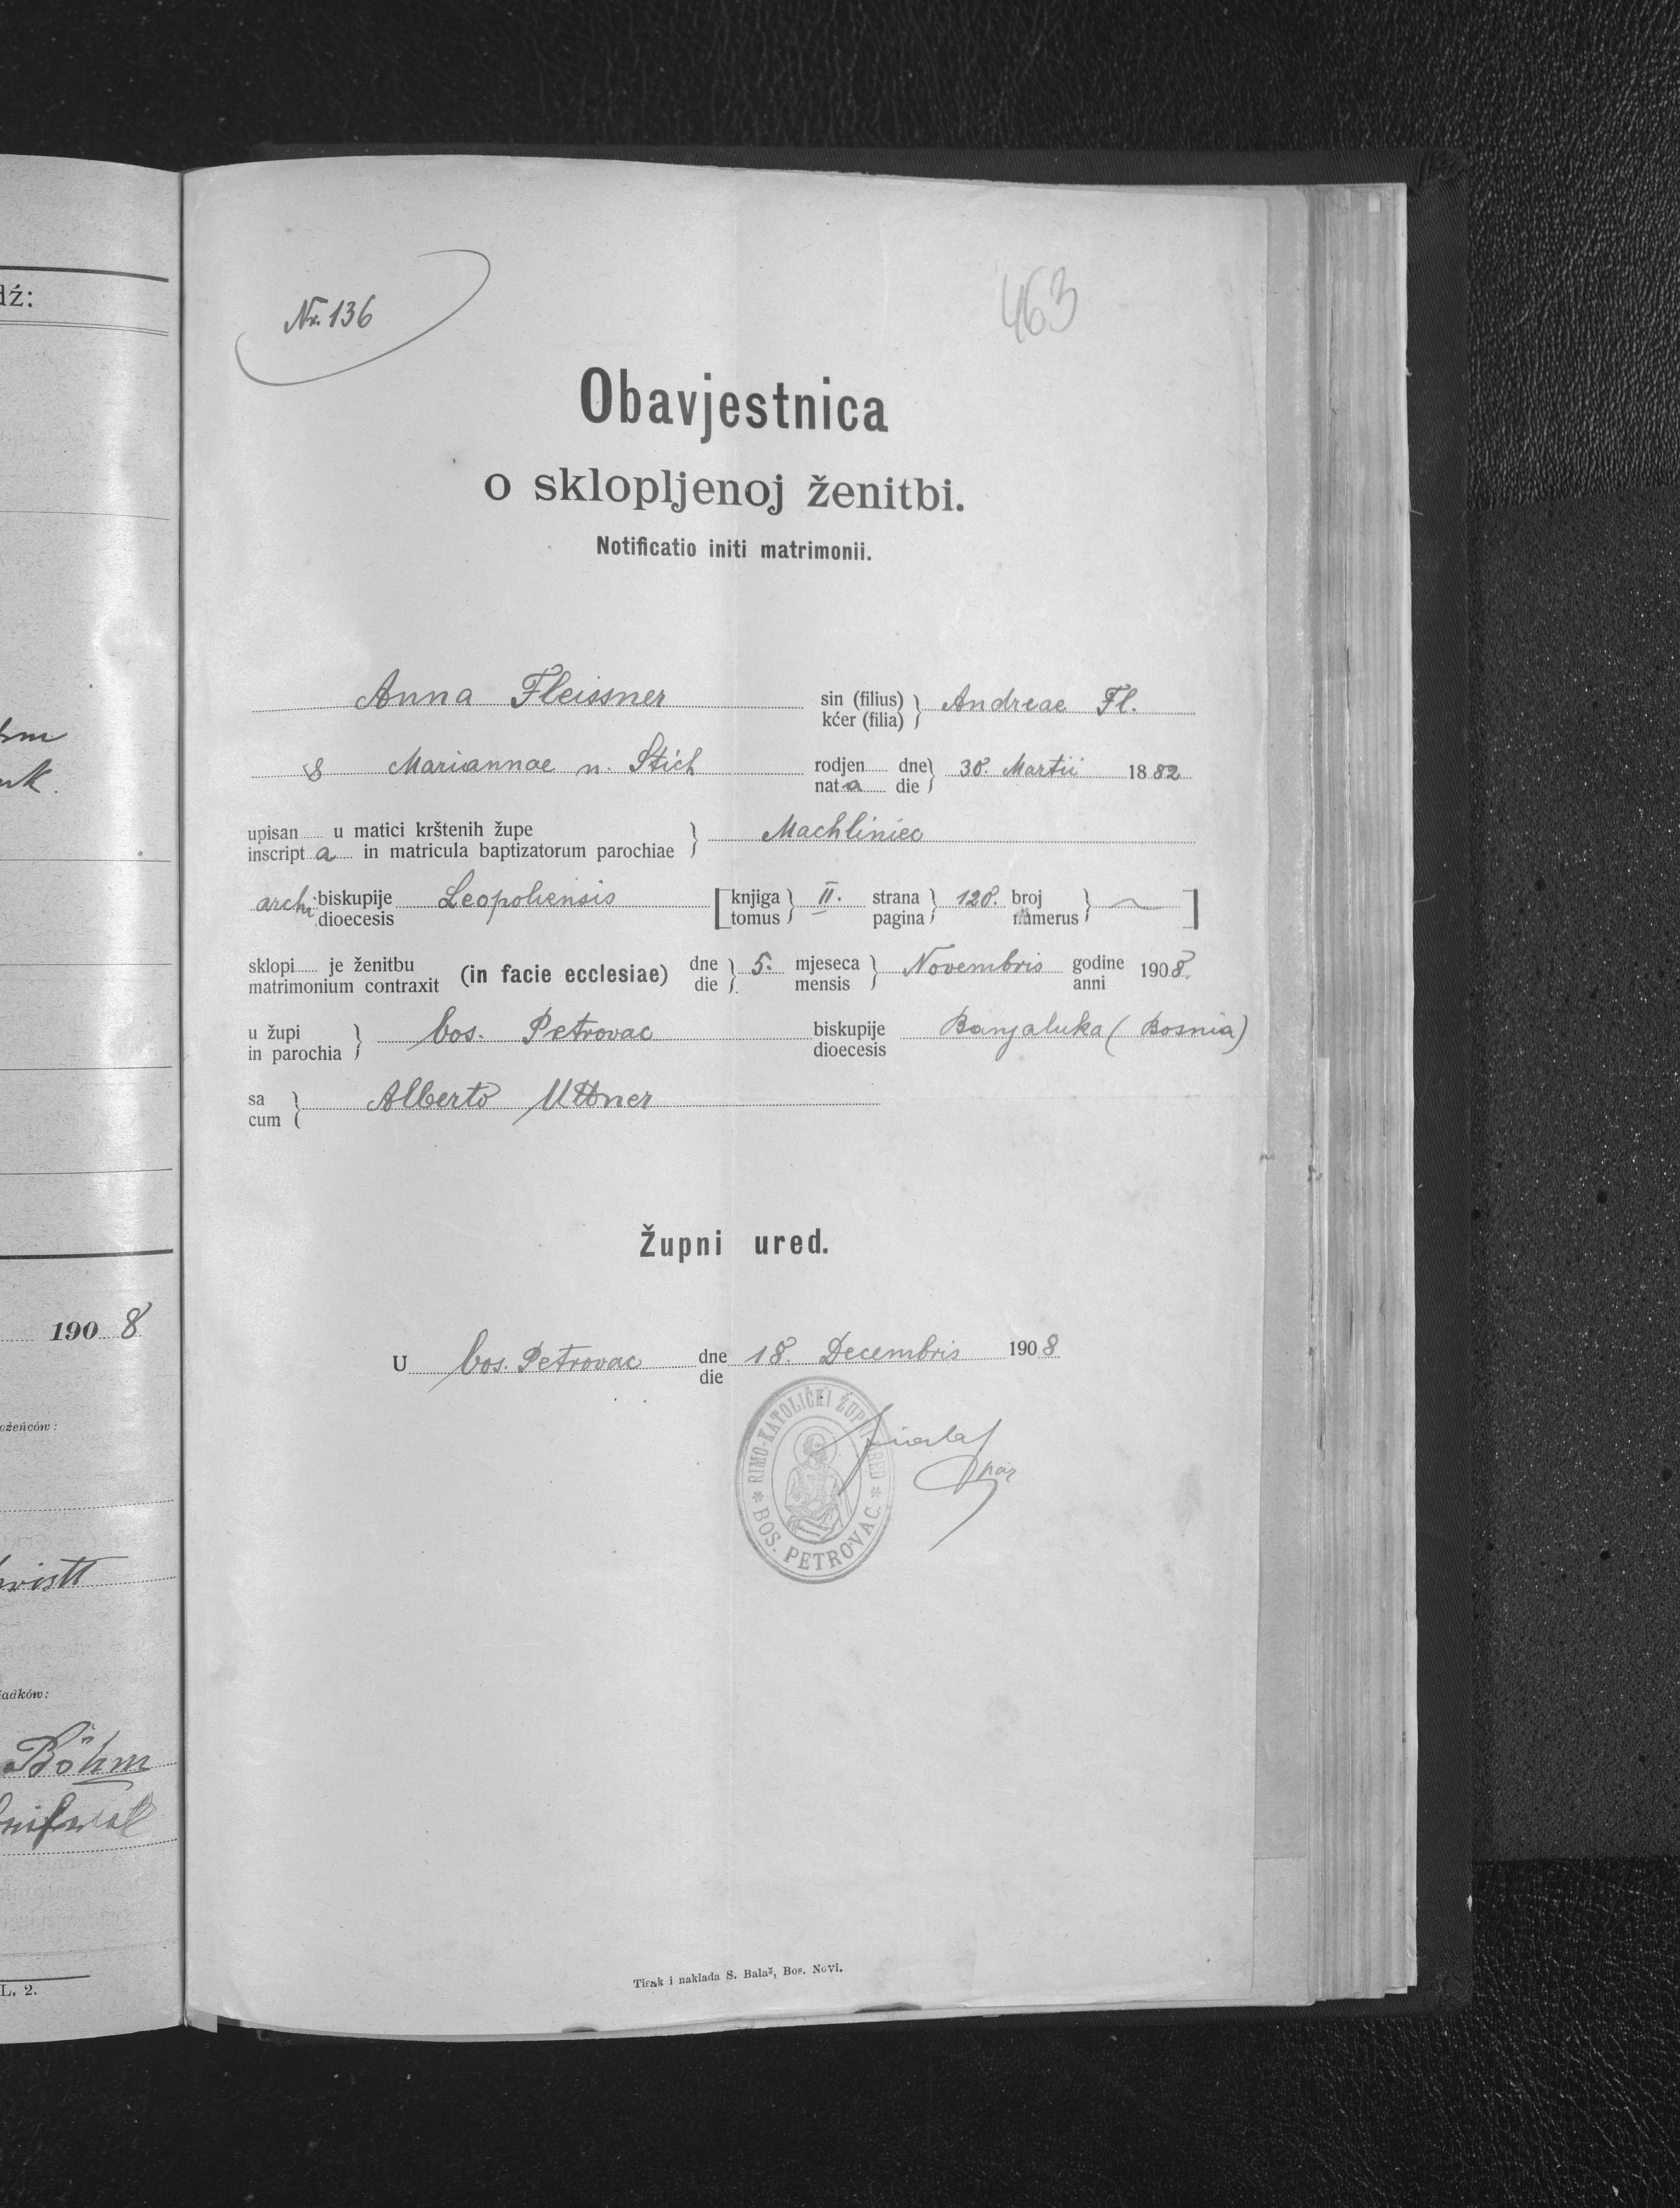 dź:
190 8
ożeńców:
iadków:
Böhm
L. 2.
Nr. 136
463
Obavjestnica
o sklopljenoj ženitbi.
Notificatio initi matrimonii.
Anna Fleissner sin (filius) kćer (filia) } Andreae Fl.
& Mariannae n. Stich rodjen dne nat a die } 30. Martii 1882
upisan u matici krštenih župe
inscript a in matricula baptizatorum parochiae } Machliniec
archi biskupije dioecesis Leopoliensis [ knjiga tomus } II. strana pagina } 128. broj numerus } ~ ]
sklopi je ženitbu matrimonium contraxit (in facie ecclesiae) dne die } 5. mjeseca mensis } Novembris godine anni 1908.
u župi in parochia } bos. Petrovac biskupije dioecesis Banjaluka (Bosnia)
sa cum } Alberto Uttner
Župni ured.
U bos. Petrovac dne die 18. Decembris 1908
RIMO-KATOLIČKI ŽUPNI URED * BOS. PETROVAC. *
Tisak i naklada S. Balaš, Bos. Novi.